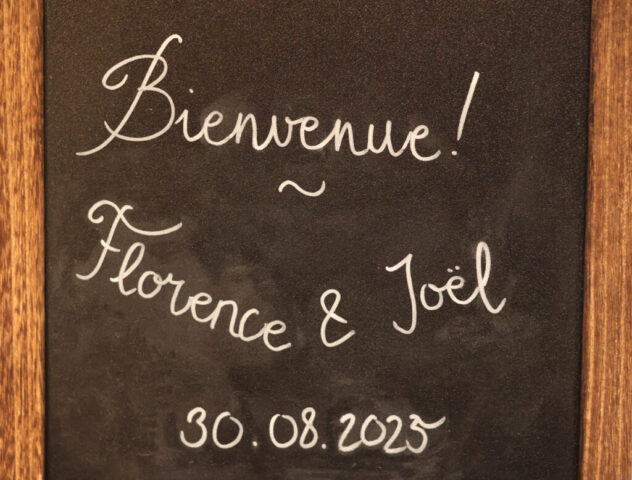 Bienvenue!
~
Florence & Joël
30.08.2025